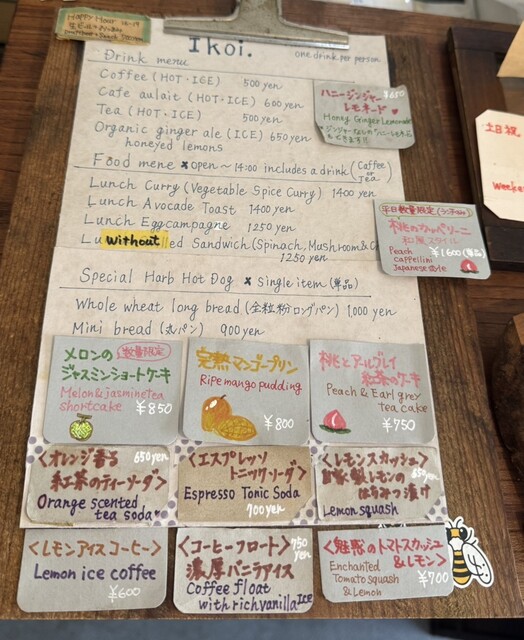 Happy Hour 16-19
Ikoi.
one drink per person
Drink menu
Coffee (HOT・ICE) 500 yen
Cafe aulait (HOT・ICE) 600 yen
Tea (HOT・ICE) 500 yen
Organic ginger ale (ICE) 650 yen
honeyed lemons
ハニージンジャー ¥650
レモネード
Honey Ginger Lemonade
Food mene × open～14:00 includes a drink (Caffee or Tea
Lunch Curry (Vegetable Spice Curry) 1400 yen
Lunch Avocade Toast 1400 yen
Lunch Eggcampagne 1250 yen
Without
ed Sandwich (Spinach, Mushroom &
1250 yen
平日数量限定(ランチのみ)
桃のカッペリーニ
和風スタイル
¥1,600 (単品)
Peach
cappellini
Japanese style
土日祝
Special Harb Hot Dog × single item (単品)
Whole wheat long bread (全粒粉ロングパン) 1,000 yen
Mini bread (丸パン) 900 yen
メロンの 数量限定
ジャスミンショートケーキ
Melon & jasmine tea
shortcake ¥850
完熟マンゴープリン
Ripe mango pudding
¥800
桃とアールグレイ
紅茶のケーキ
Peach & Earl grey
tea cake
¥750
<オレンジ香る 650yen
紅茶のティーソーダ>
Orange scented
tea soda
<エスプレッソ
トニックソーダ>
Espresso Tonic Soda
700 yen
<レモンスカッシュ>
自家製レモンの
はちみつ漬け
Lemon squash
<レモンアイスコーヒー>
Lemon ice coffee
¥600
<コーヒーフロート> 750 yen
濃厚バニラアイス
Coffee float
with rich vanilla Ice
<魅惑のトマトスカッシュ
&レモン>
Enchanted
Tomato squash
& Lemon
¥700